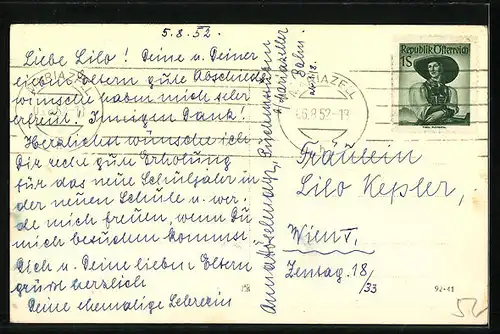 5.8.52.
Liebe Lilo! Deine u. Deiner
lieben Eltern gute Abschieds
wünsche haben mich sehr
erfreut! Innigen Dank!
Herzlichst wünsche ich
Dir recht gute Erholung
für das neue Schuljahr in
der neuen Schule u. wer-
de mich freuen, wenn Du
mich besuchen kommst.
Dich u. Deine lieben Eltern
grüßt herzlich
Deine ehemalige Lehrerin
Mariazeller
Bahn
MARIAZELL
MARIAZELL
-6.8.52-18
Republik Österreich
1S
Fräulein
Lilo Kepler,
Wien V.
Zentag. 18
/33
92-41
52